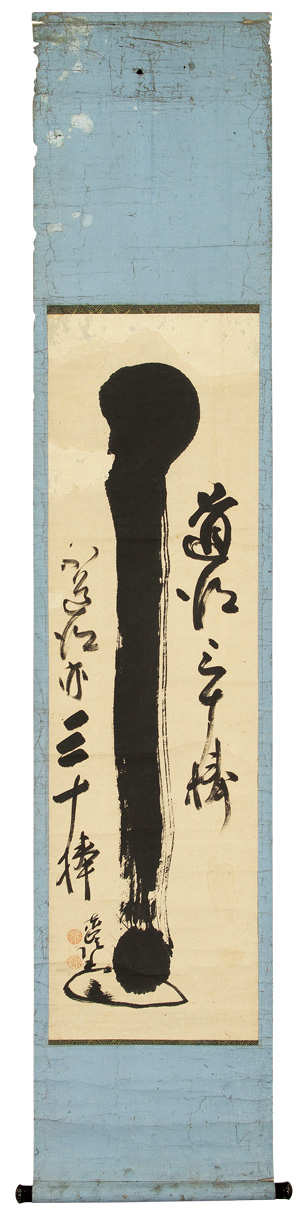 道得三十棒
不道得亦三十棒